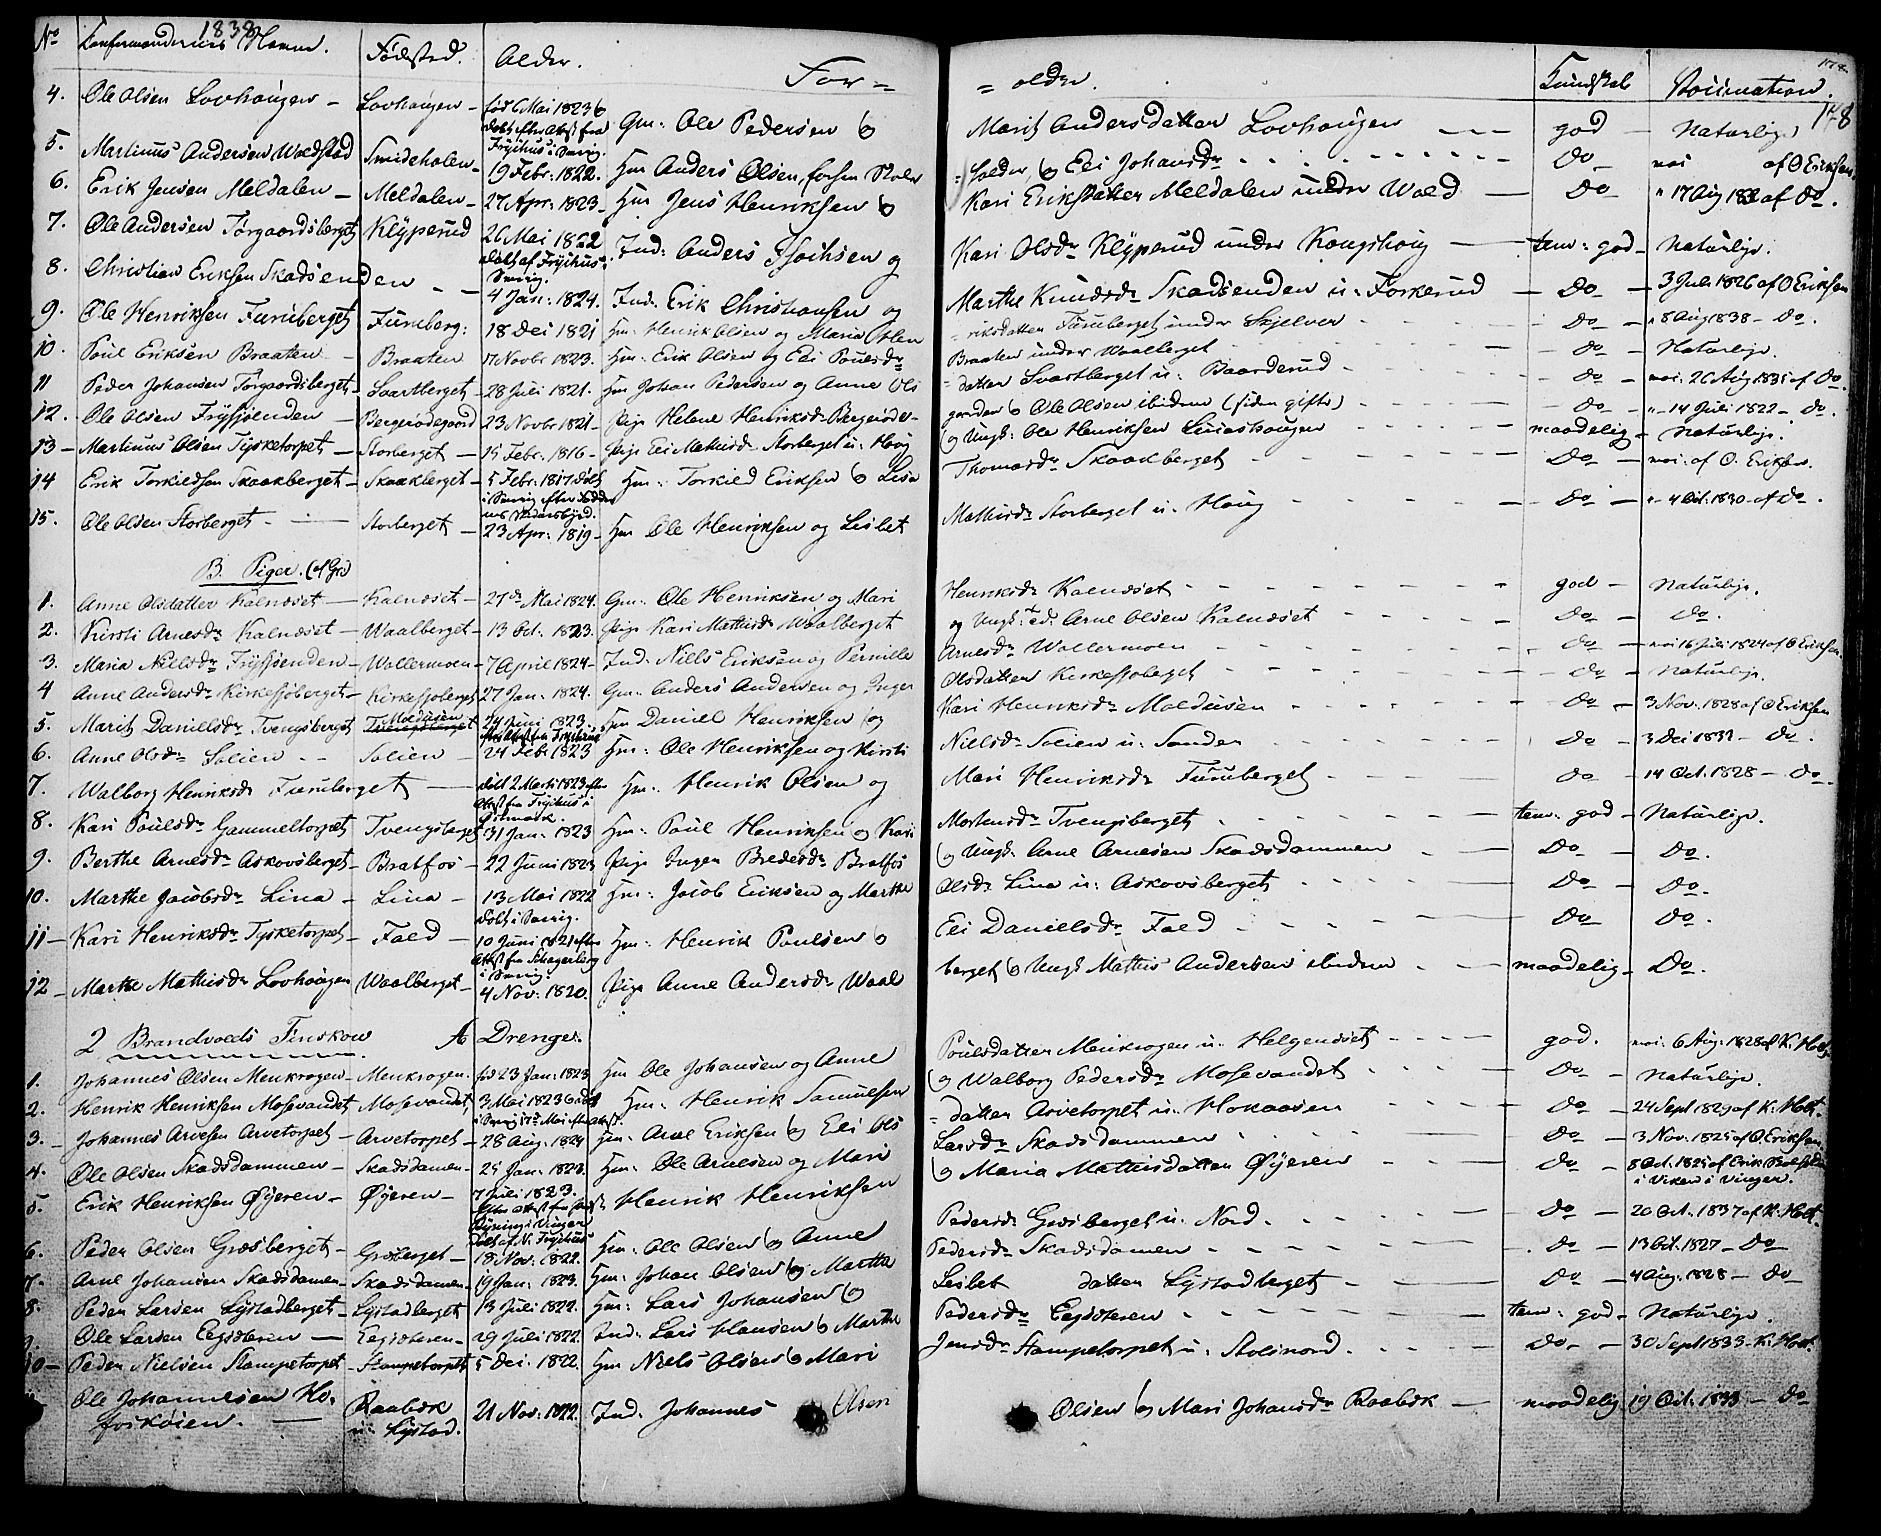 1838
No Confirmandernes Navne. Fødested. Alder. For= =ældre. Kundskab Vaccination.
178
4. Ole Olsen Lovhaugen – Lovhaugen – fød 6 Mai 1823 døbt efter Attest fra Gm: Ole Pedersen og Marit Andersdatter Lovhaugen god – Naturlige
Fryxhus i Sverig.
5. Martinus Andersen Smideholen – 19 Febr: 1822. Hm Anders Olsen, og Eli Johansdr Do – af O Eriksen
6. Erik Jensen Meldalen – Meldalen – 27 Apr: 1823 – Hm Jens Henriksen og Kari Eriksdatter Meldalen under Wold – Do – " 17 Aug af Do.
7. Ole Andersen Torgaardsberget Klypperud 26 Mai 1822 Ind: Anders og Kari Olsdr Klypperud under Kongshoug – tem: god – Naturlige.
døbt af Fryxhus i
Sverig.
8. Christian Eriksen Skadsenden – – 4 Jan: 1824. Ind. Erik Christiansen og Marthe Knudsdr Skadsenden u: – Do – 3 Juli 1826 af O Eriksen
9. Ole Henriksen Furuberget Furuberg: 18 Dec 1821 Hm: Henrik Olsen og Maria Hen riksdatter Furuberget under Skjelver Do – " 8 Aug 1838 – Do.
10. Poul Eriksen Braaten – Braaten 17 Novbr 1823. Hm: Erik Olsen og Eli Poulsdr Braaten under Waalberget – Do – Naturlige.
11 Peder Johansen Torgaardsberget – Svartberget – 28 Juli 1821. Hm Johan Pedersen og Anne Ols =datter Svartberget u: Baarderud – Do – vac: 26 Aug 1835 af Do.
12. Ole Olsen Fryssjøenden – Bergerødegaard 23 Novbr 1821 – Pige Helene Henriksdr Bergerøde- gaarden og Ole Olsen ibidem (siden gifte) – Do – " – 14 Juli 1822 – Do.
13 – Martinus Olsen Tysketorpet – Storberget – 15 Febr. 1816 – Pige Eli Mathisdr Storberget u: Houg og Ungk: Ole Henriksen Linashaugen maadelig – Naturlige.
14 Erik Torkildsen Skaakberget – Skaakberget – 5 Febr: 1817. døbt Hm: Torkild Eriksen og Lisa Thomasdr Skaakberget – Do – vac: af O. Eriksen.
i Sverig efter
23 Apr: 1819 –
15. Ole Olsen Storberget – Storberget – Hm Ole Henriksen og Lisbet Mathisdr Storberget u: Houg – Do – " – 4 Oct: 1830 – af Do.
B. Piger. (af Gr)
1. Anne Olsdatter Kalneset – Kalneset – 27de Mai 1824. Gm: Ole Henriksen og Mari Henriksdr Kalneset god – Naturlige.
2. Kirsti Arnesdr Kalneset – Waalberget – 13 Oct. 1823. Pige Kari Mathisdr Waalberget og Ungk: Arne Olsen Kalneset Do – Do.
3. Maria Nielsdr Fryssjøenden – Wallermoen – 7 April 1824 – Ind: Niells Eriksen og Pernille Arnesdr Wallermoen Do – vac 16 Juli 1824 af O Eriksen.
4 Anne Andersdr Kirkesjøberget – Kirkesjøberget 27 Jan: 1824. Gm: Anders Andersen og Inger Olsdatter Kirkesjøberget Do – Naturlige.
5. Marit Danielsdr Tvengsberget Tvengsberget Moldusen 24 Juni 1823. Hm Daniel Henriksen og Kari Henriksdr Moldusen Do – 3 Nov. 1828 af O Eriksen
6. Anne Olsdr Solien – – Solien – 24 Febr 1823 Hm: Ole Henriksen og Kirsti Nielsdr Solien u: Sander Do – 3 Dec 1832 – Do.
7. Walborg Henriksdr Furuberget – døbt 2 Marti 1823 efter Hm: Henrik Olsen og Mari Henriksdr Furuberget Do – 14 Oct. 1828 – Do.
Attest fra Fryxhus i
8. Kari Poulsdr Gammeltorpet Tvengsberget 31 Jan: 1823 Hm: Poul Henriksen og Kari Mortensdr Tvengsberget – tem: god – Naturlige.
9. Berthe Arnesdr Askovsberget – Bratfos – 22 Juni 1823 Pige Inger Bredesdr Bratfos og Ungk: Arne Arnesen Skadsdammen – Do – Do.
10. Marthe Jacobsdr Lina – Lina – 13 Mai 1822 Hm: Jacob Eriksen og Marthe Olsdr Lina u: Askovsberget – Do – Do.
døbt i Sverig.
11 – Kari Henriksdr Tysketorpet – Fald – 10 Juni 1821 efter Hm: Henrik Poulsen og Eli Danielsdr Fald Do – Do.
Attest fra
i Sverig.
12 – Marthe Mathisdr Lovhaugen Waalberget – 4 Nov: 1820. Pige Anne Andersdr Waal berget og Ungk Mathis Andersen ibidem – maadelig – Do.
2 Brandvoeds Finskov A Drenge.
1. Johannes Olsen Menkrogen – Menkrogen. fød 23 Jan: 1823 Hm Ole Johansen og Anne Poulsdatter Menkrogen u: Helgeneset – god. vac: 6 Aug. 1828 af K. Holt.
2. Henrik Henriksen Mosevandet Mosevandet 3 Mai 1823 Hm: Henrik Samuelsen og Walborg Pedersdr Mosevandet Do – Naturlige.
3. – Johannes Arnesen Arvetorpet – Arvetorpet – 28 Aug: 1824 Hm: Arne Eriksen og Eli Ols =datter Arvetorpet u: Mokaasen Do – 24 Sept 1829 af K. Holt.
4. Ole Olsen Skadsdammen – Skadsdamen – 25 Jan: 1823. Hm: Ole Arnesen og Mari Larsdr Skadsdammen Do – 3 Nov. 1825 af O. Eriksen.
5. Erik Henriksen Øyeren – Øyeren – 7 Juli 1823. Henrik Henriksen og Maria Mathisdatter Øyeren Do – 8 Oct. 1825 af Erik
i Viker i Vinger.
6. Peder Olsen Græsberget – Græsberget – 18 Nov: 1822. Hm: Ole Olsen og Anne Pedersdr Græsberget u: Nord. Do – 20 Oct. 1837 af K. Holt.
7. Arne Johansen Skadsdamen – Skadsdamen – 19 Jan: 1823. Hm: Johan Olsen og Marthe Pedersdr Skadsdamen Do – 13 Oct. 1827 – Do
8. Peder Larsen Lystadberget – Lystadberget 13 Juli 1822. Hm: Lars Johansen og Lisbet datter Lystadberget – Do – 4 Aug. 1828 – Do
9. Ole Larsen Eegsæteren – Eegsæteren – 29 Juli 1822. Ind: Lars Hansen og Marthe Pedersdr Eegsæteren – tem: god – Naturlige.
10 – Peder Nielsen Stampetorpet – Stampetorpet 5 Dec: 1822. Hm Niels Olsen og Mari Jensdr Stampetorpet u: Stolsnord. – Do – – 30 Sept 1833 – K. Holt.
Ole Johannesen Ho=
foskoien. – Raabæk
u: Lystad. 21 Nov: 1822. Ind. Johannes Olsen Olsen og Mari Johansdr Raabæk – maadelig 19 Oct: 1833 – Do